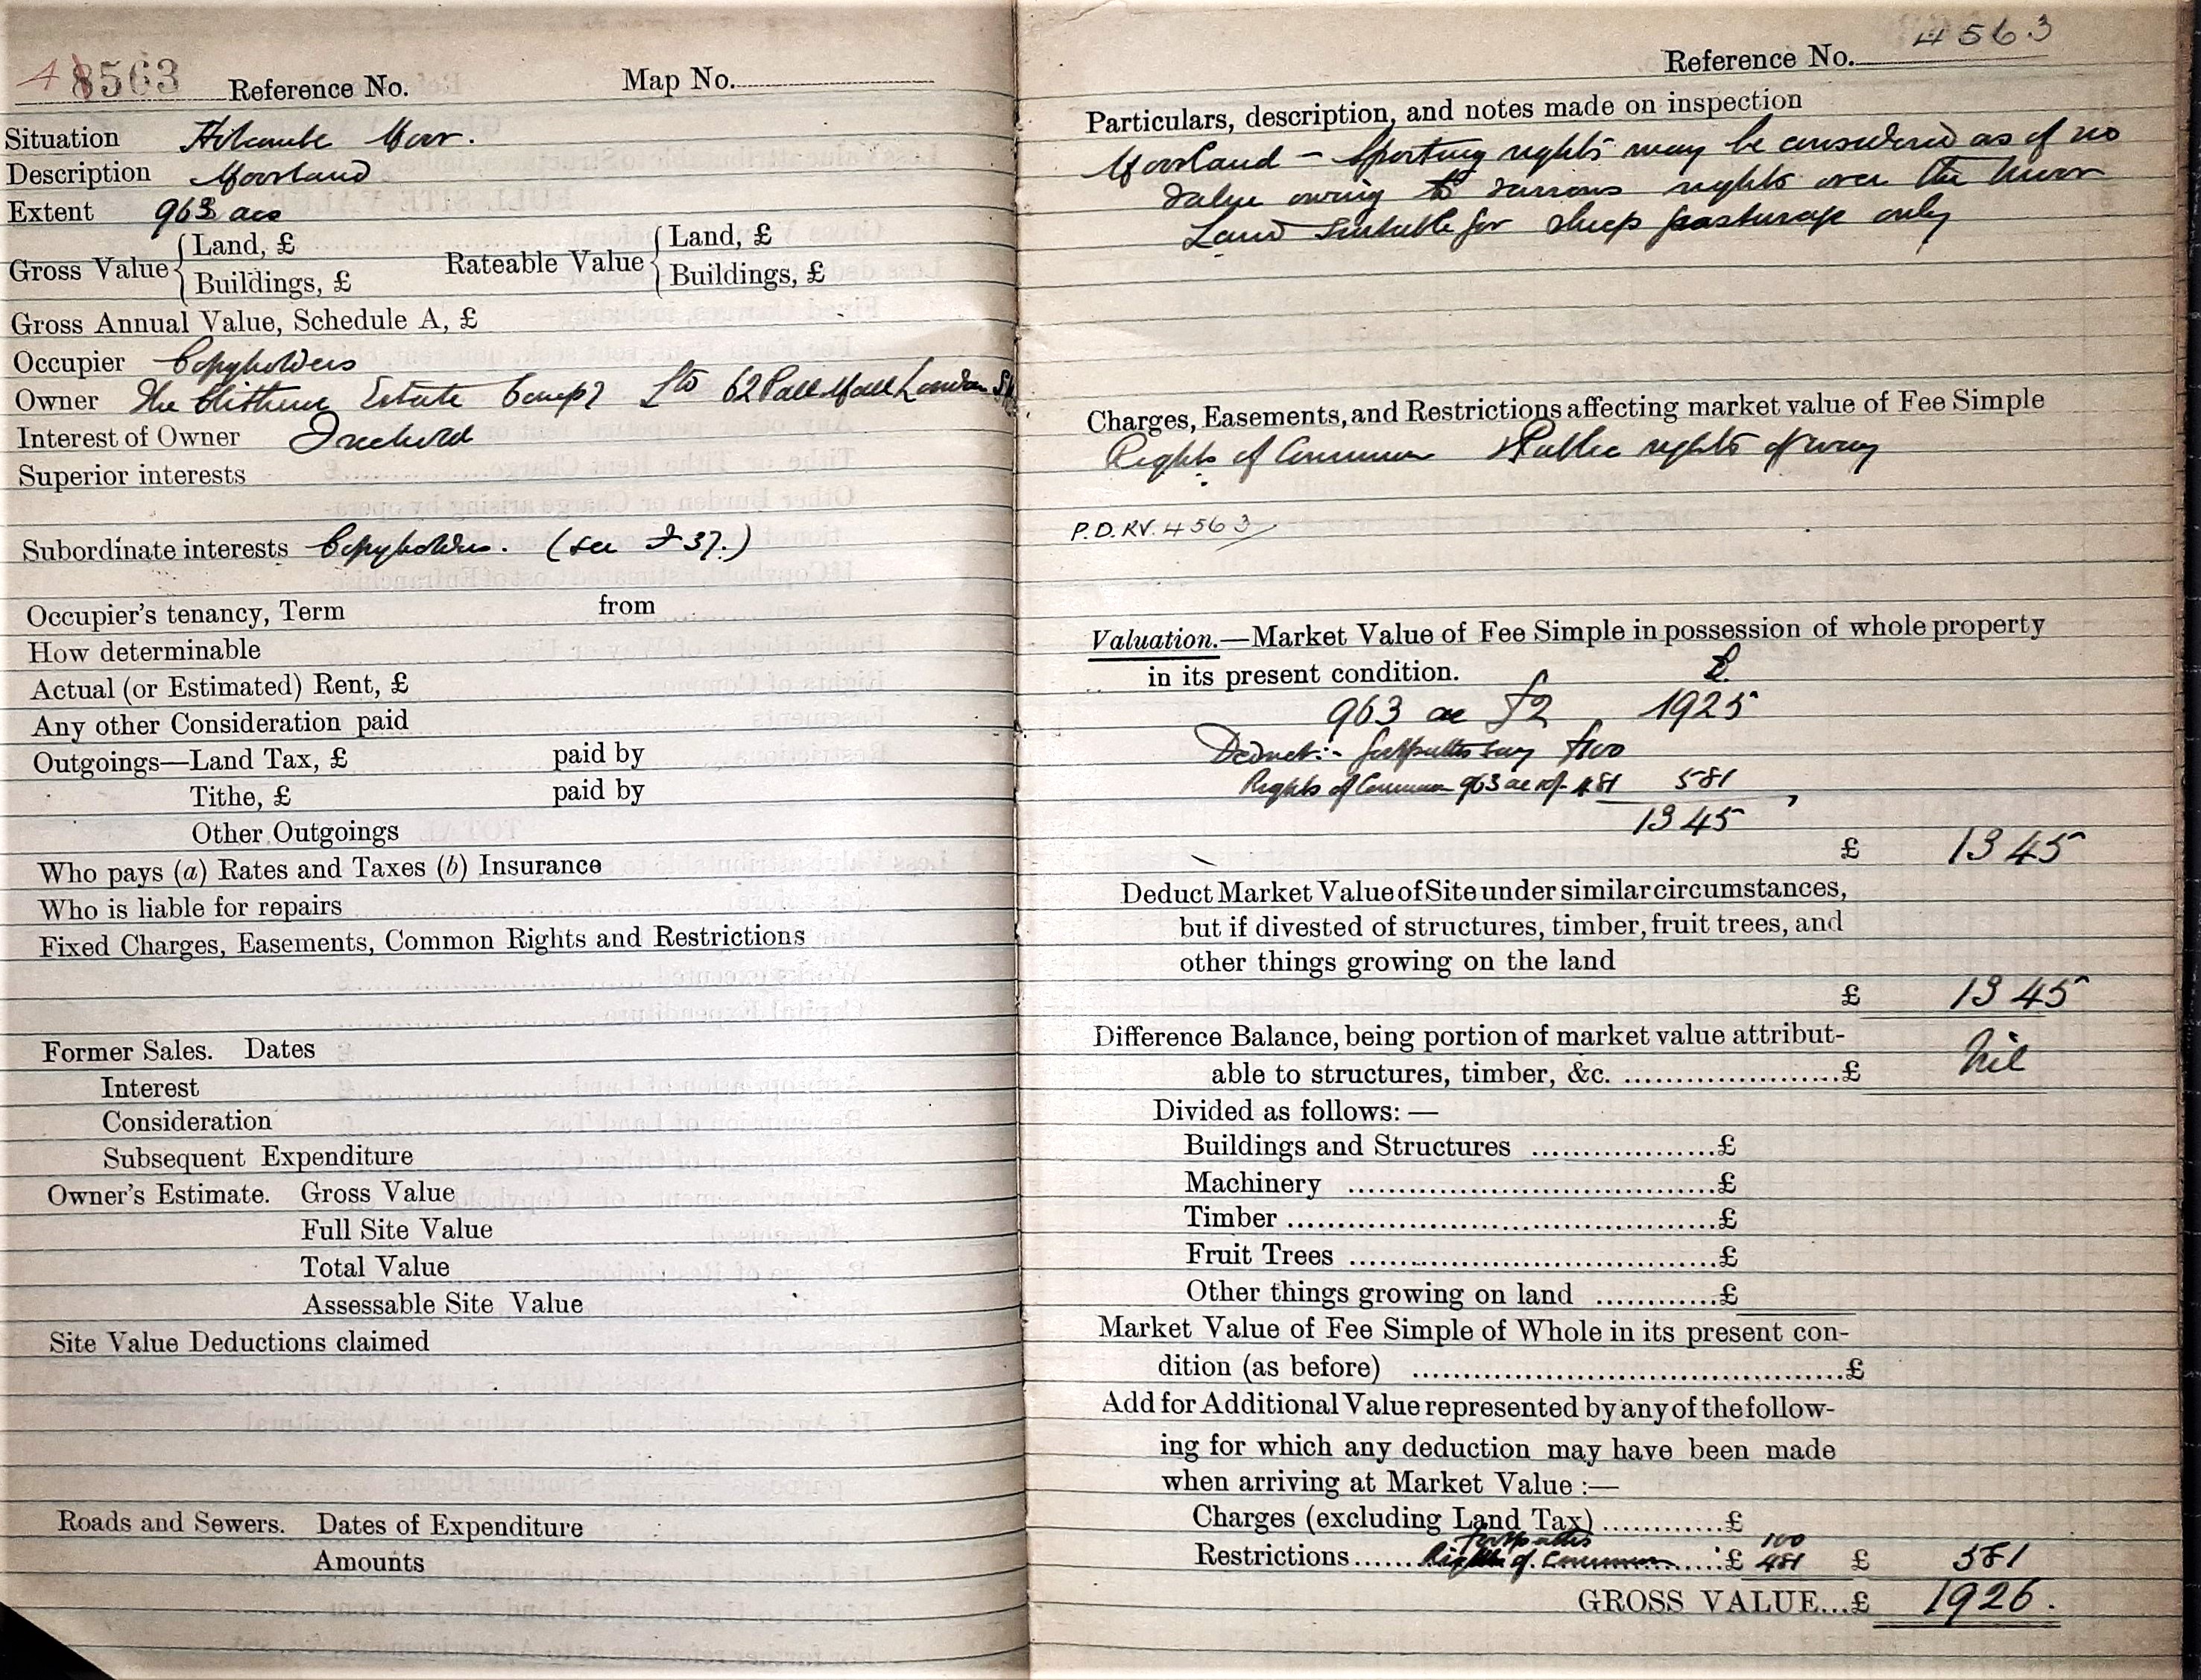 48563 Reference No. Map No.
Situation Holcombe Moor.
Description Moorland
Extent 963 acs
Gross Value { Land, £ Rateable Value { Land, £
Buildings, £ Buildings, £
Gross Annual Value, Schedule A, £
Occupier Copyholders
Owner The Clitheroe Estate Compy Ltd 62 Pall Mall London SW
Interest of Owner Freehold
Superior interests
Subordinate interests Copyholders. (see F 37.)
Occupier's tenancy, Term from
How determinable
Actual (or Estimated) Rent, £
Any other Consideration paid
Outgoings—Land Tax, £ paid by
Tithe, £ paid by
Other Outgoings
Who pays (a) Rates and Taxes (b) Insurance
Who is liable for repairs
Fixed Charges, Easements, Common Rights and Restrictions
Former Sales. Dates
Interest
Consideration
Subsequent Expenditure
Owner's Estimate. Gross Value
Full Site Value
Total Value
Assessable Site Value
Site Value Deductions claimed
Roads and Sewers. Dates of Expenditure
Amounts
Reference No. 4563
Particulars, description, and notes made on inspection
Moorland – Sporting rights may be considered as of no
value owing to various rights over the moor
Land suitable for sheep pasturage only
Charges, Easements, and Restrictions affecting market value of Fee Simple
Rights of Common Public rights of way
P.D. RV. 4563
Valuation.—Market Value of Fee Simple in possession of whole property
in its present condition. £
963 ac £2 1925
Deduct:- footpaths say £100
Rights of Common 963 ac 481 581
1345
£ 1345
Deduct Market Value of Site under similar circumstances,
but if divested of structures, timber, fruit trees, and
other things growing on the land
£ 1345
Difference Balance, being portion of market value attribut-
able to structures, timber, &c. £ Nil
Divided as follows:—
Buildings and Structures £
Machinery £
Timber £
Fruit Trees £
Other things growing on land £
Market Value of Fee Simple of Whole in its present con-
dition (as before) £
Add for Additional Value represented by any of the follow-
ing for which any deduction may have been made
when arriving at Market Value :—
Charges (excluding Land Tax) £
footpaths 100
Restrictions Rights of Common £ 481 £ 581
GROSS VALUE...£ 1926.